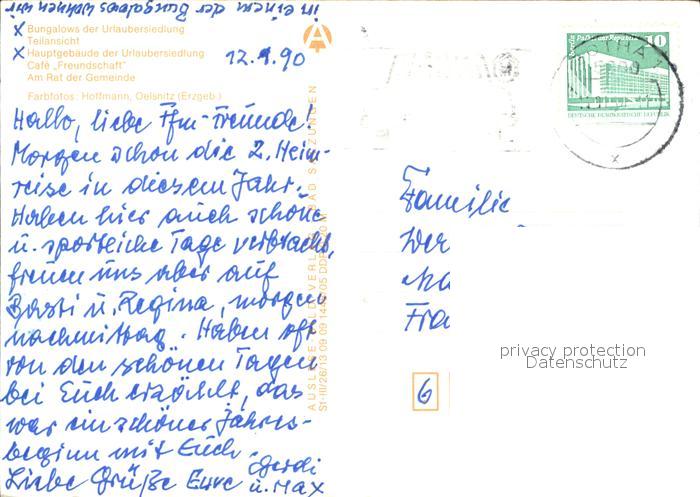 in einem der Bungalows wohnen wir
X Bungalows der Urlaubersiedlung
Teilansicht
X Hauptgebäude der Urlaubersiedlung
Café „Freundschaft"
Am Rat der Gemeinde
Farbfotos: Hoffmann, Oelsnitz (Erzgeb.)
12.1.90
Hallo, liebe Ffm-Freunde!
Morgen schon die 2. Heim-
reise in diesem Jahr.
Haben hier auch schöne
u. sportliche Tage verbracht,
freuen uns aber auf
Basti u. Regina, morgen
nachmittag. Haben oft
von den schönen Tagen
bei Euch erzählt, das
war ein schöner Jahres-
beginn mit Euch.
Liebe Grüße Eure Gerdi
u. Max
AUSLESE-BILD-VERLAG BAD SALZUNGEN
A
10
Palast der Republik
DEUTSCHE DEMOKRATISCHE REPUBLIK
Familie
Wer
Fra
6
privacy protection
Datenschutz